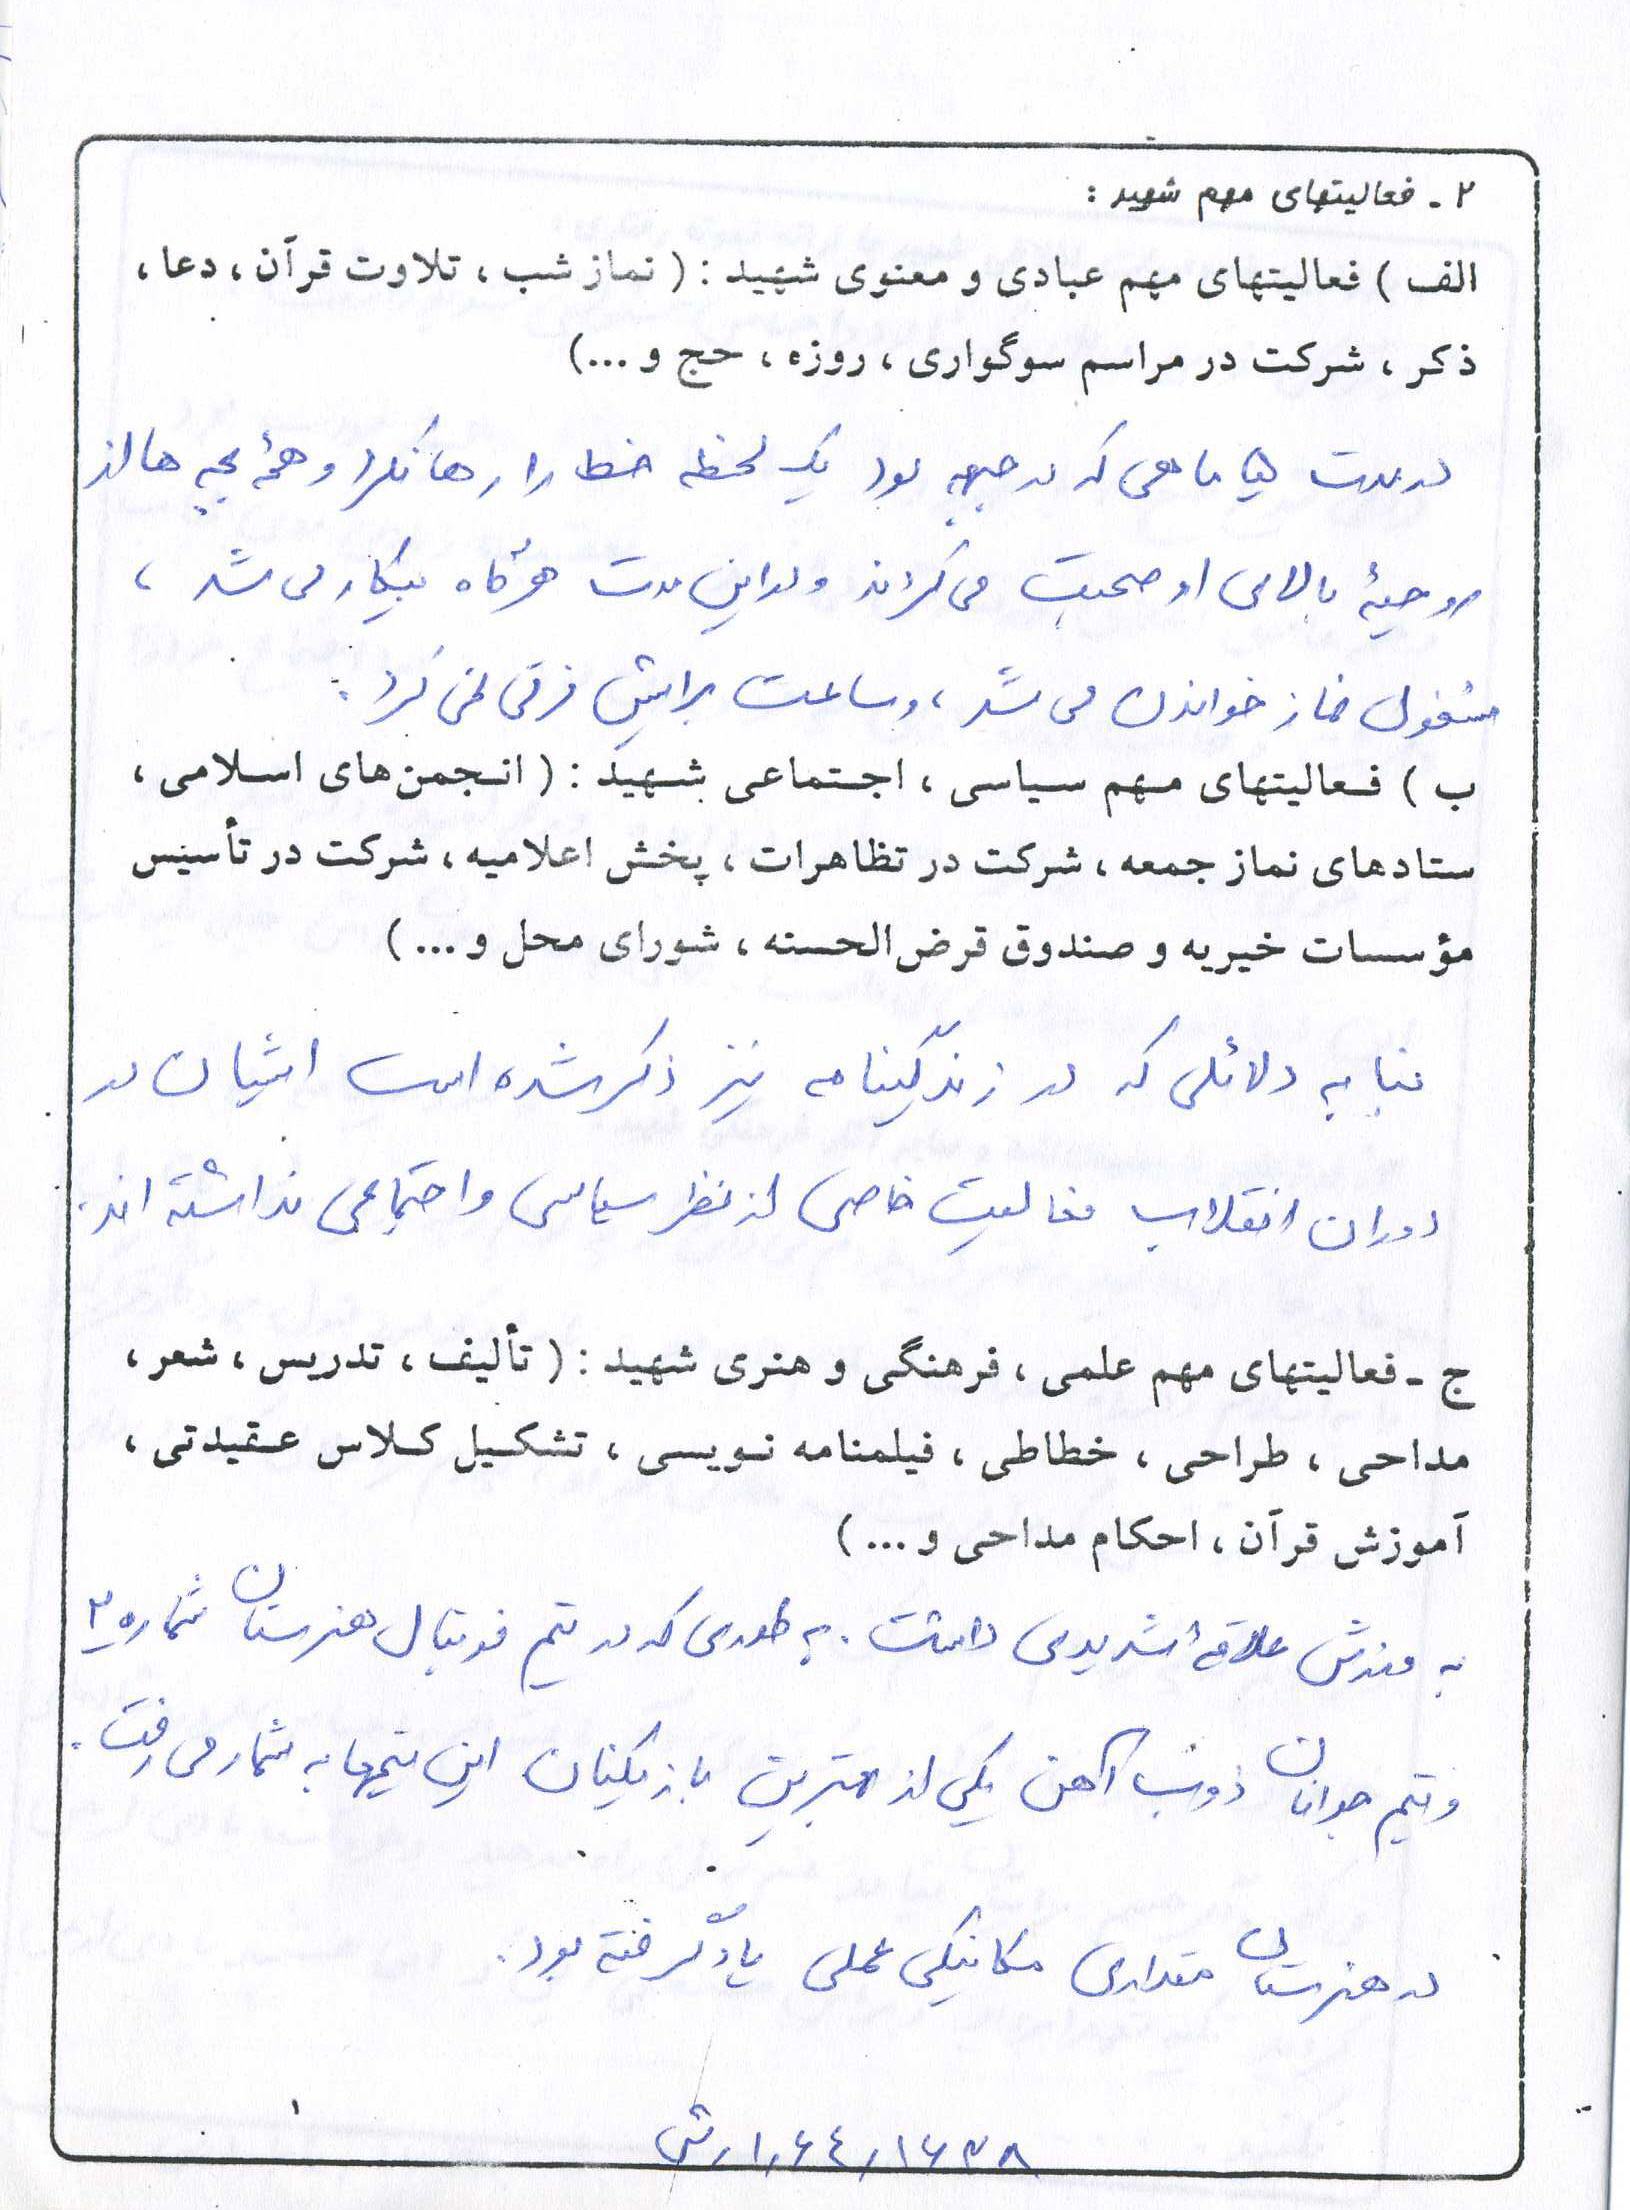 ۲ ـ فعالیتهای مهم شهید :
الف ) فعالیتهای مهم عبادی و معنوی شهید : ( نماز شب ، تلاوت قرآن ، دعا ،
ذکر ، شرکت در مراسم سوگواری ، روزه ، حج و ...)
در مدت ۵ ماهی که در جبهه بود یک لحظه خط را رها نکرد و همهٔ بچه ها از
روحیهٔ بالای او صحبت می کردند و در این مدت هرگاه بیکار می شد ،
مشغول نماز خواندن می شد ، و ساعت برایش فرقی نمی کرد .
ب ) فعالیتهای مهم سیاسی ، اجتماعی شهید : ( انجمن های اسلامی ،
ستادهای نماز جمعه ، شرکت در تظاهرات ، پخش اعلامیه ، شرکت در تأسیس
مؤسسات خیریه و صندوق قرض الحسنه ، شورای محل و ... )
بنا به دلائلی که در زندگینامه نیز ذکر شده است ایشان در
دوران انقلاب فعالیت خاصی از نظر سیاسی و اجتماعی نداشته اند .
ج ـ فعالیتهای مهم علمی ، فرهنگی و هنری شهید : ( تألیف ، تدریس ، شعر ،
مداحی ، طراحی ، خطاطی ، فیلمنامه نویسی ، تشکیل کلاس عقیدتی ،
آموزش قرآن ، احکام مداحی و ... )
به ورزش علاقهٔ شدیدی داشت . به طوری که در تیم فوتبال هنرستان شماره ۲
و تیم جوانان ذوب آهن یکی از بهترین بازیکنان این تیمها به شمار می رفت .
در هنرستان مقداری مکانیکی عملی یاد گرفته بود .